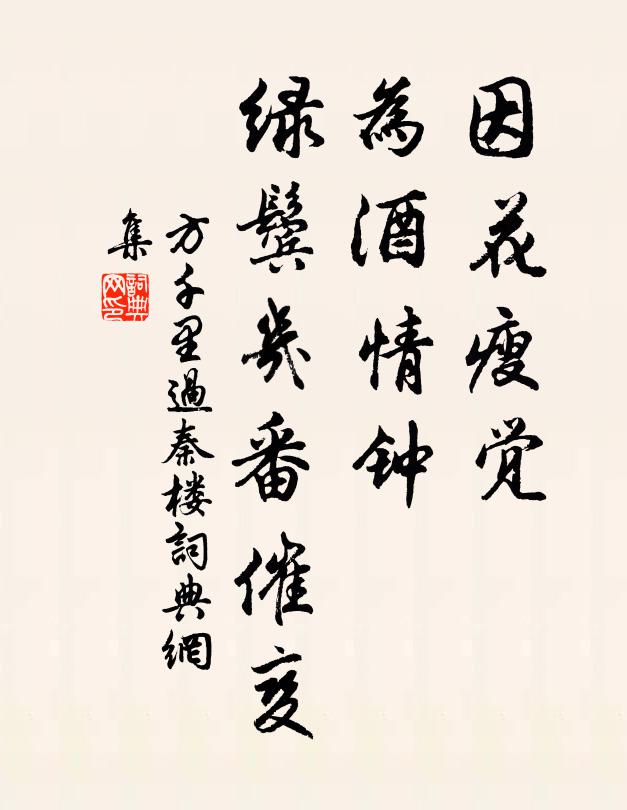 因花瘦觉
為酒情钟
绿鬓幾番催变
方千里過秦楼詞典網
集
詞典
网印